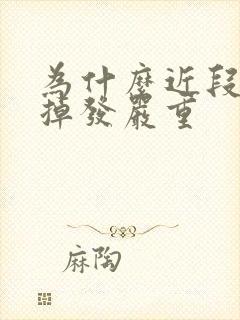 為什麼近段
掉發嚴重
麻陶